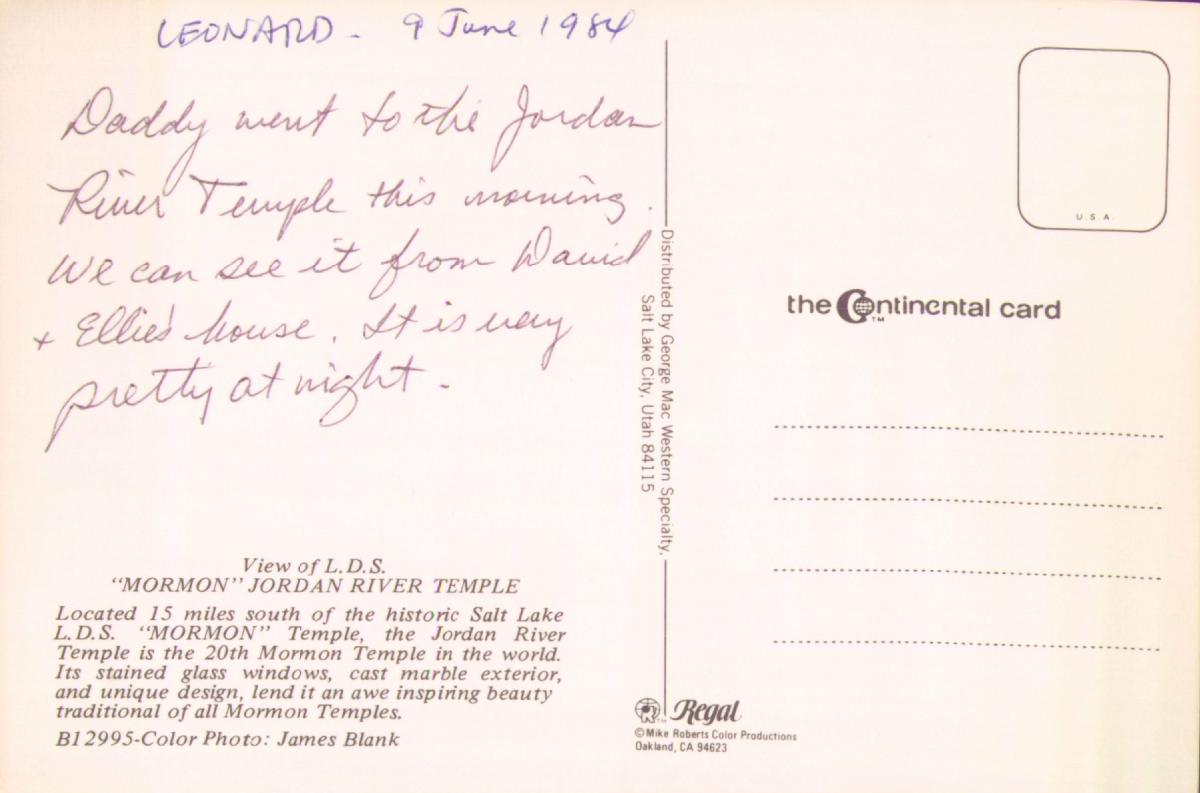 LEONARD - 9 June 1984
Daddy went to the Jordan
River Temple this morning.
We can see it from David
+ Ellie's house. It is very
pretty at night.
View of L.D.S.
"MORMON" JORDAN RIVER TEMPLE
Located 15 miles south of the historic Salt Lake
L.D.S. "MORMON" Temple, the Jordan River
Temple is the 20th Mormon Temple in the world.
Its stained glass windows, cast marble exterior,
and unique design, lend it an awe inspiring beauty
traditional of all Mormon Temples.
B12995-Color Photo: James Blank
Distributed by George Mac Western Specialty,
Salt Lake City, Utah 84115
U.S.A.
the Continental card
TM
TM Regal
© Mike Roberts Color Productions
Oakland, CA 94623